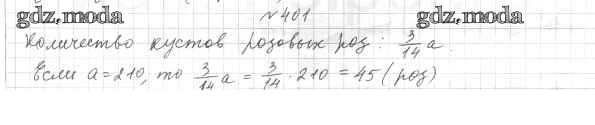 gdz.moda №401 gdz.moda
Количество кустов розовых роз: 3/14 a.
Если a = 210, то 3/14 a = 3/14 · 210 = 45 (роз)